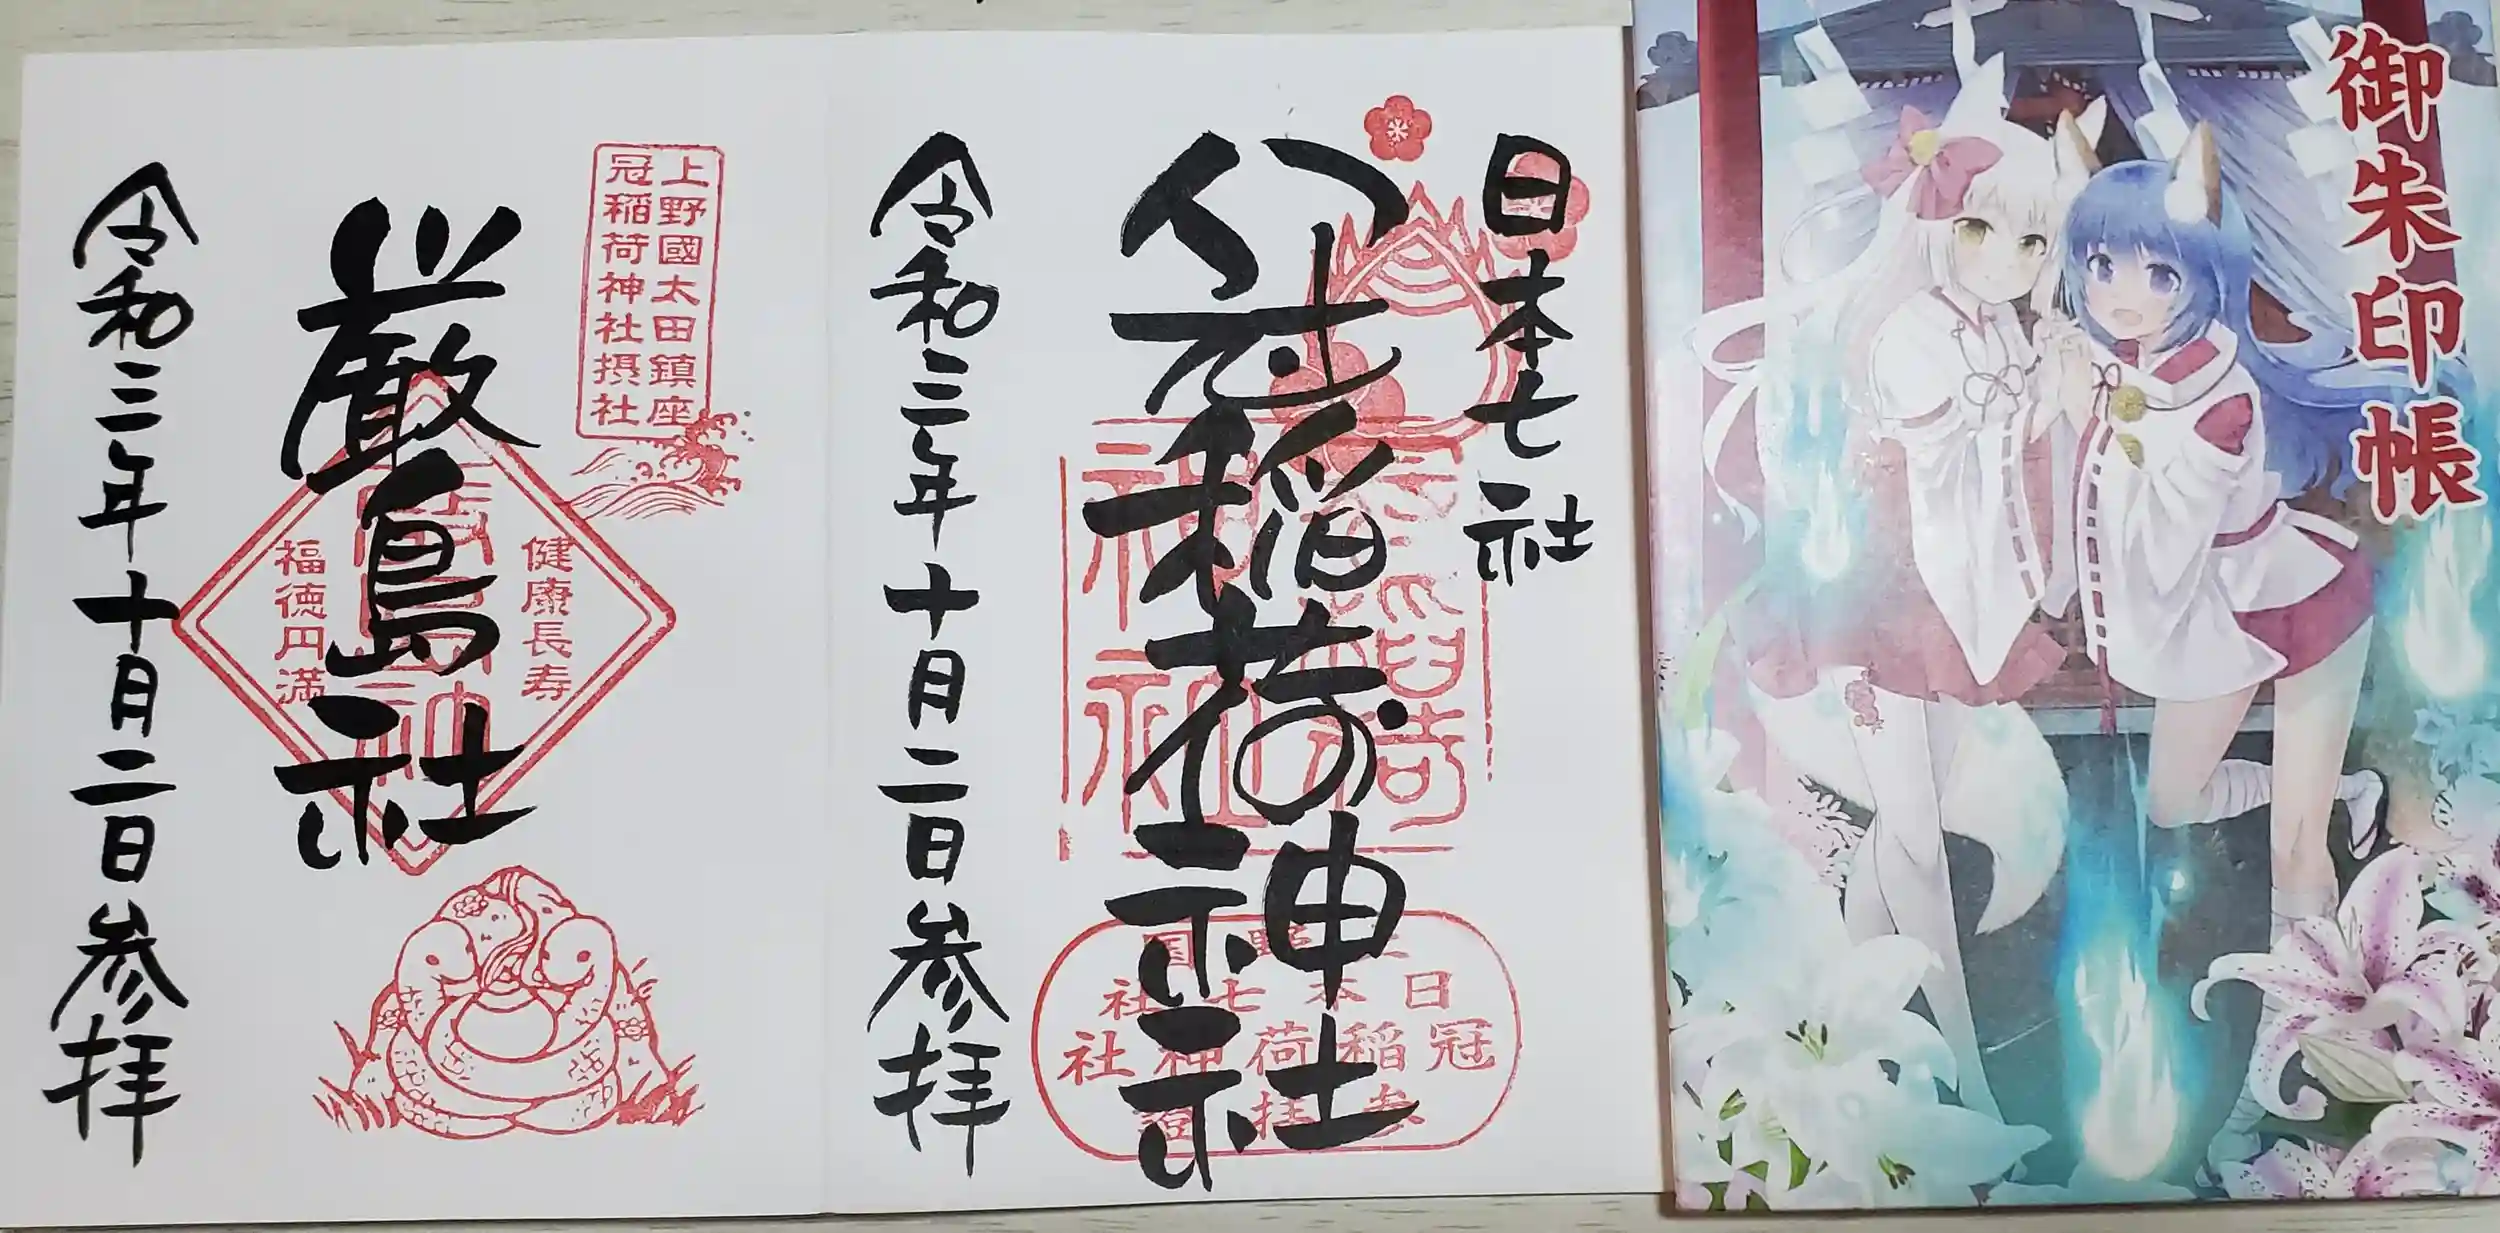 御朱印帳
日本七社
冠稲荷神社
上野国
日本七社
冠稲荷神社
参拝
令和三年十月二日参拝
上野國太田鎮座
冠稲荷神社摂社
厳島社
健康長寿
福徳円満
令和三年十月二日参拝